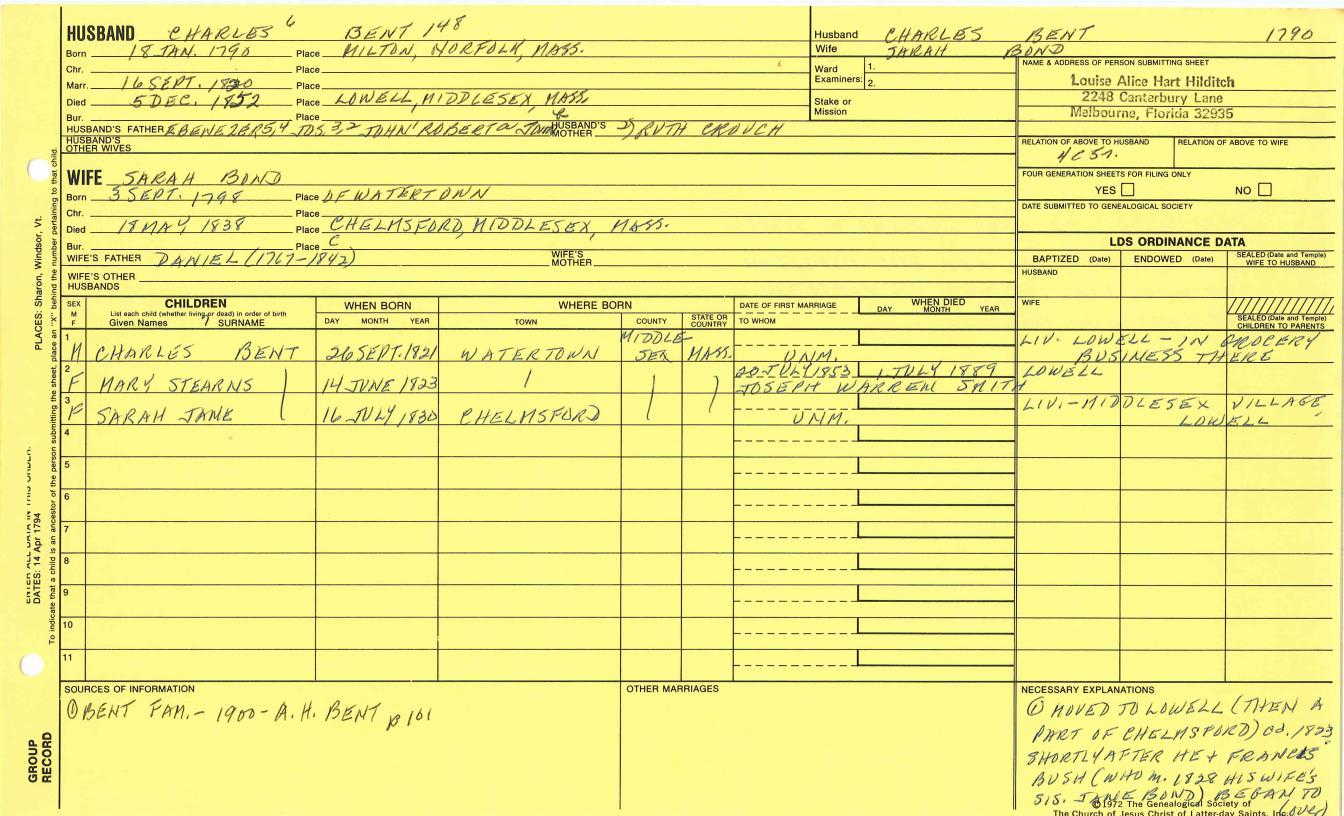 HUSBAND CHARLES 6 BENT 148
Born 18 JAN. 1790 Place MILTON, NORFOLK, MASS.
Chr. Place
Marr. 16 SEPT. 1820 Place
Died 5 DEC. 1852 Place LOWELL, MIDDLESEX, MASS.
Bur. Place
HUSBAND'S FATHER EBENEZER5,4 JOS.3,2 JOHN1 ROBERT JOHN HUSBAND'S MOTHER RUTH CROUCH
HUSBAND'S OTHER WIVES
Husband CHARLES BENT 1790
Wife SARAH BOND
Ward Examiners: 1.
2.
Stake or Mission
NAME & ADDRESS OF PERSON SUBMITTING SHEET
Louise Alice Hart Hilditch
2248 Canterbury Lane
Melbourne, Florida 32935
RELATION OF ABOVE TO HUSBAND RELATION OF ABOVE TO WIFE
4C5r.
FOUR GENERATION SHEETS FOR FILING ONLY
YES NO
DATE SUBMITTED TO GENEALOGICAL SOCIETY
WIFE SARAH BOND
Born 3 SEPT. 1798 Place OF WATERTOWN
Chr. Place
Died 18 MAY 1838 Place CHELMSFORD, MIDDLESEX, MASS.
Bur. Place C
WIFE'S FATHER DANIEL (1767-1842) WIFE'S MOTHER
WIFE'S OTHER HUSBANDS
LDS ORDINANCE DATA
BAPTIZED (Date) ENDOWED (Date) SEALED (Date and Temple) WIFE TO HUSBAND
HUSBAND
WIFE
SEALED (Date and Temple) CHILDREN TO PARENTS
SEX M F
CHILDREN
List each child (whether living or dead) in order of birth
Given Names 7 SURNAME
WHEN BORN
DAY MONTH YEAR
WHERE BORN
TOWN COUNTY STATE OR COUNTRY
DATE OF FIRST MARRIAGE
TO WHOM
WHEN DIED
DAY MONTH YEAR
1 M CHARLES BENT 26 SEPT. 1821 WATERTOWN MIDDLESEX MASS. UNM. LIV. LOWELL - IN GROCERY BUSINESS THERE
2 F MARY STEARNS 14 JUNE 1823 20 JULY 1853 1 JULY 1889 LOWELL
JOSEPH WARREN SMITH
3 F SARAH JANE 16 JULY 1830 CHELMSFORD UNM. LIV. - MIDDLESEX VILLAGE, LOWELL
4
5
6
7
8
9
10
11
SOURCES OF INFORMATION
① BENT FAM. - 1900 - A. H. BENT p 101
OTHER MARRIAGES
NECESSARY EXPLANATIONS
① MOVED TO LOWELL (THEN A
PART OF CHELMSFORD) Cd. 1823
SHORTLY AFTER HE & FRANCIS
BUSH (WHO M. 1828 HIS WIFE'S
SIS. JANE BOND) BEGAN TO
(over)
©1972 The Genealogical Society of
The Church of Jesus Christ of Latter-day Saints, Inc.
PLACES: Sharon, Windsor, Vt.
ENTER ALL DATA IN THIS ORDER:
DATES: 14 Apr 1794
To indicate that a child is an ancestor of the person submitting the sheet, place an "X" behind the number pertaining to that child.
GROUP RECORD